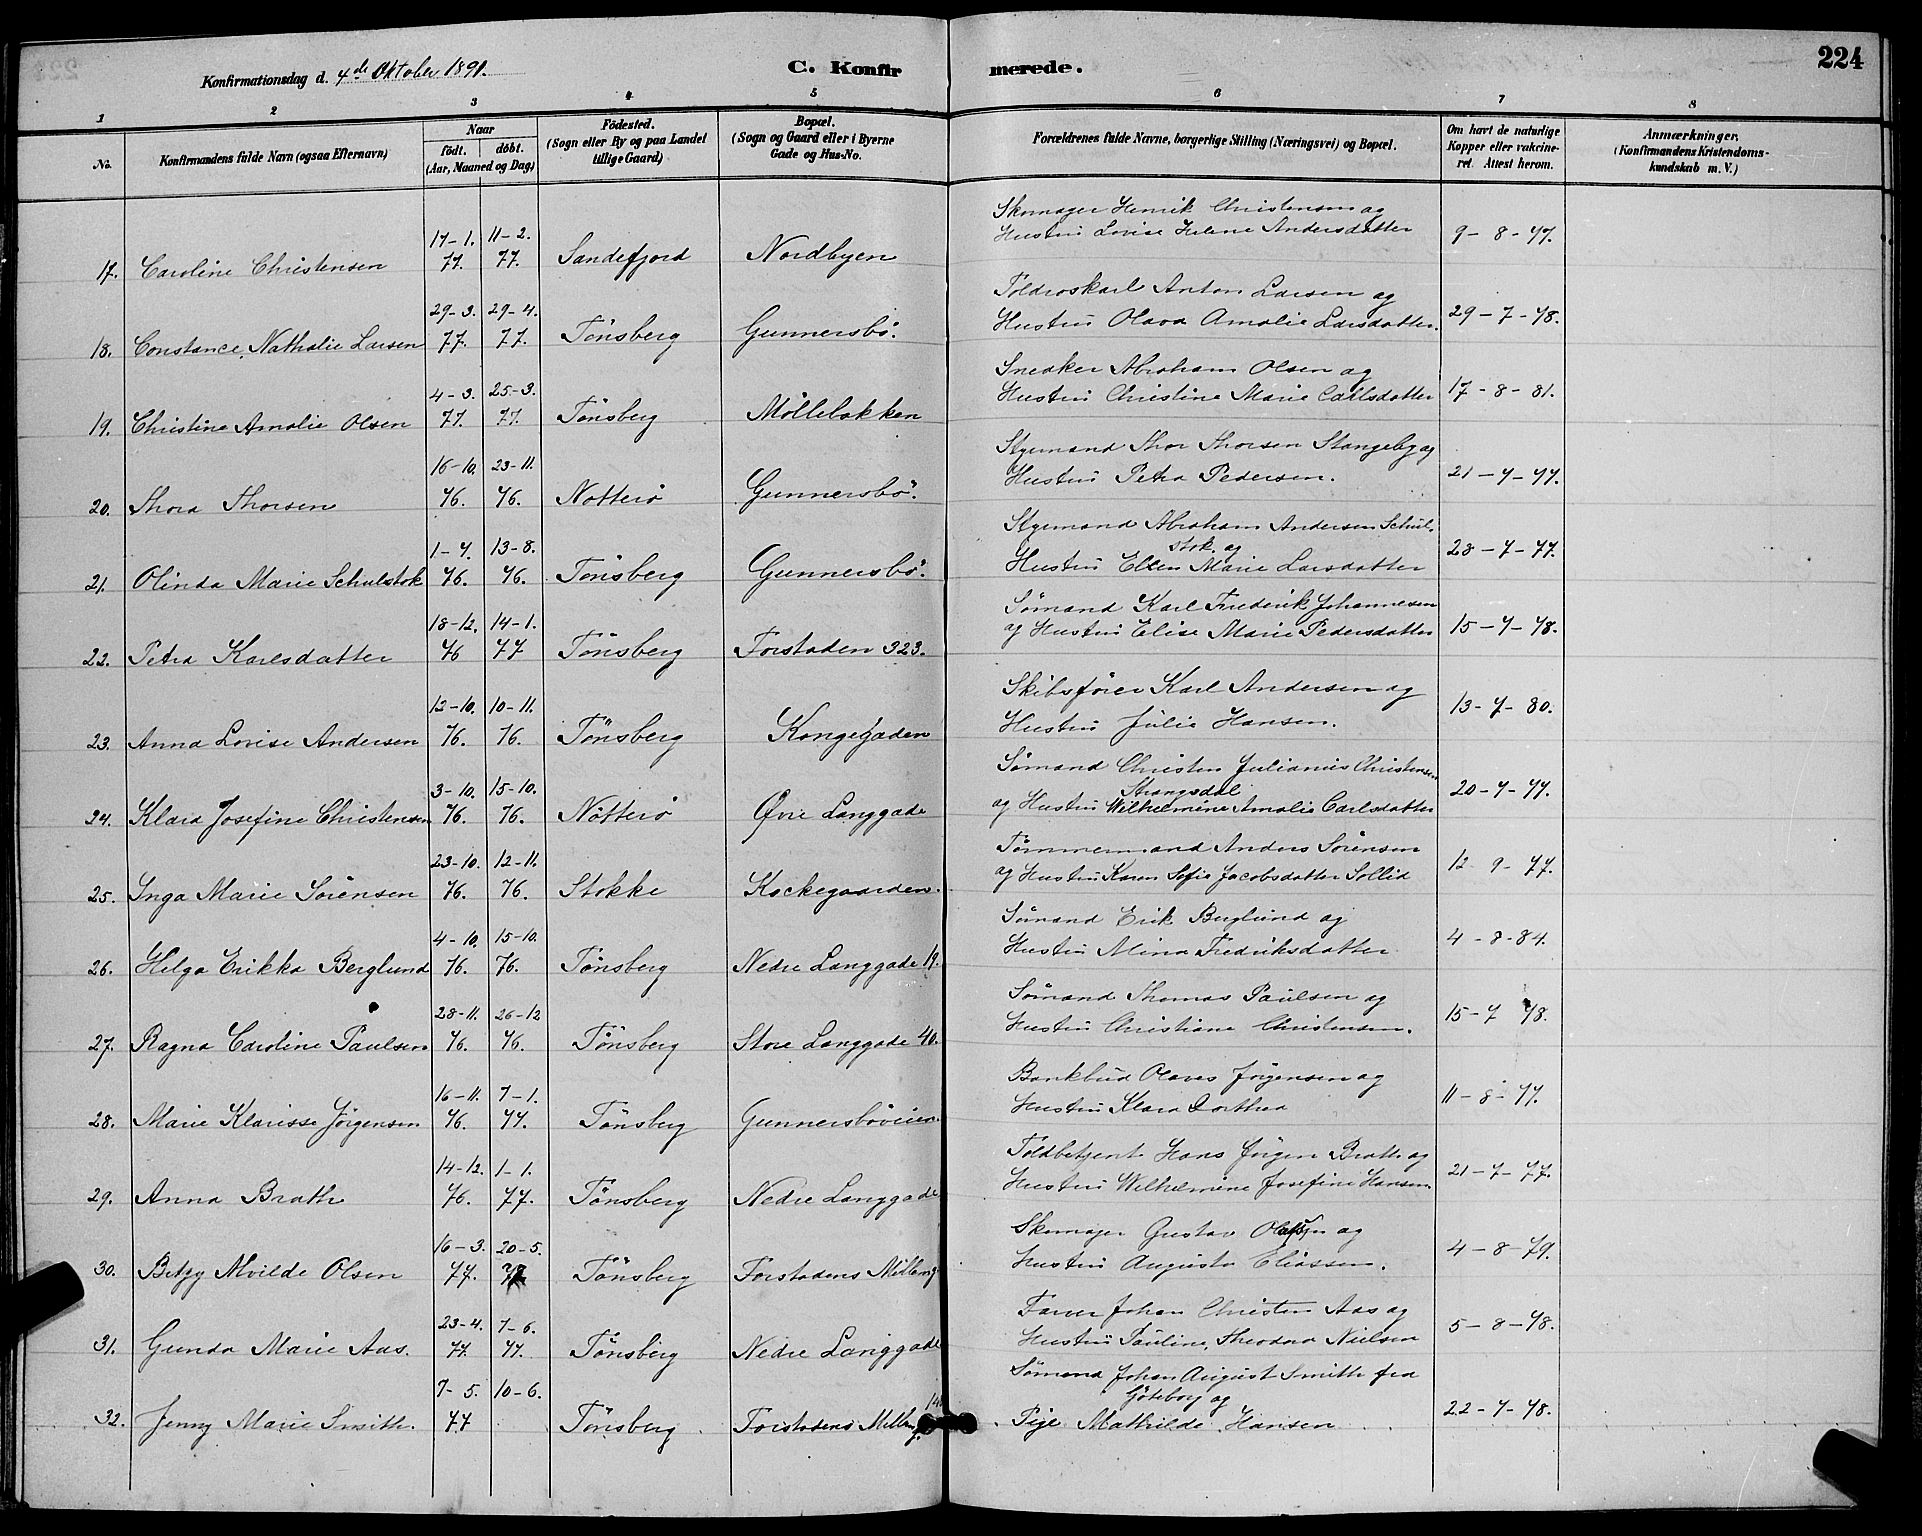 Konfirmationsdag d. 4de Oktober 1891.
C. Konfirmerede.
224
1 2 3 4 5 6 7 8
No.
Konfirmandens fulde Navn (ogsaa Efternavn)
Naar
födt. döbt.
(Aar, Maaned og Dag)
Födested.
(Sogn eller By og paa Landet
tillige Gaard)
Bopæl.
(Sogn og Gaard eller i Byerne
Gade og Hus-No.
Forældrenes fulde Navne, borgerlige Stilling (Næringsvei) og Bopæl.
Om havt de naturlige
Kopper eller vakcine-
ret. Attest herom.
Anmærkninger.
(Konfirmandens Kristendoms-
kundskab m. V.)
17. Caroline Christensen 17-1. 77. 11-2. 77. Sandefjord Nordbyen
Skomager Henrik Christensen og
Hustru Lovise Helene Andersdatter 9-8-77.
18. Constance Nathalie Larsen 29-3. 77. 29-4. 77. Tönsberg Gunnersbö.
Toldroskarl Anton Larsen og
Hustru Olava Amalie Larsdatter. 29-7-78.
19. Christine Amalie Olsen 4-3. 77. 25-3. 77. Tönsberg Möllebakken
Snedker Abraham Olsen og
Hustru Christine Marie Carlsdatter 17-8-81.
20. Thora Thorsen 16-10. 76. 23-11. 76. Nötterö Gunnersbö.
Styrmand Thor Thorsen Stangeby og
Hustru Petra Pedersen. 21-7-77.
21. Olinda Marie Schulstok 1-7. 76. 13-8. 76. Tönsberg Gunnersbö.
Styrmand Abraham Andersen Schul-
stok. og
Hustru Ellen Marie Larsdatter 28-7-77.
22. Petra Karlsdatter 18-12. 76 14-1. 77 Tönsberg Forstaden 323.
Sömand Karl Frederik Johannesen
og Hustru Elise Marie Pedersdatter 15-7-78.
23. Anna Lovise Andersen 12-10. 76. 10-11. 76. Tönsberg Kongegaden
Skibsförer Karl Andersen og
Hustru Julie Hansen. 13-7-80.
24. Klara Josefine Christensen 3-10. 76. 15-10. 76. Nötterö Øvre Langgade
Sömand Christen Julianus Christensen
Strangsdal
og Hustru Wilhelmine Amalie Carlsdatter 20-7-77.
25. Inga Marie Sörensen 23-10. 76. 12-11. 76. Stokke Kockegaarden.
Tömmermand Anders Sörensen
og Hustru Karen Sofie Jacobsdatter Sollid 12-9-77.
26. Helga Erikka Berglund 4-10. 76. 15-10. 76. Tönsberg Nedre Langgade 19.
Sömand Erik Berglund og
Hustru Mina Fredriksdatter 4-8-84.
27. Ragna Caroline Paulsen 28-11. 76. 26-12 76. Tönsberg Store Langgade 40.
Sömand Thomas Paulsen og
Hustru Christiane Christensen. 15-7 78.
28. Marie Klarisse Jörgensen 16-11. 76. 7-1. 77. Tönsberg Gunnersböveien.
Bankbud Olaves Jörgensen og
Hustru Klara Dorthea 11-8-77.
29. Anna Brath 14-12. 76. 1-1. 77. Tönsberg Nedre Langgade
Toldbetjent Hans Jörgen Brath og
Hustru Wilhelmine Josefine Hansen. 21-7-77.
30. Betzy Alvilde Olsen 16-3. 77. 20-5. Tönsberg Forstadens Mellemg.
Skomager Gustav Olafsen og
Hustru Augusta Eliassen. 4-8-79.
31. Gunda Marie Aas. 23-4. 77. 7-6. 77. Tönsberg Nedre Langgade
Farver Johan Christen Aas og
Hustru Pauline Theodora Nielsen 5-8-78.
32. Jenny Marie Smith. 7-5. 77 10-6. Tönsberg Forstadens Mellemg.
Sömand Johan August Smith fra
Göteborg og
Pige Mathilde Hansen 22-7-78.